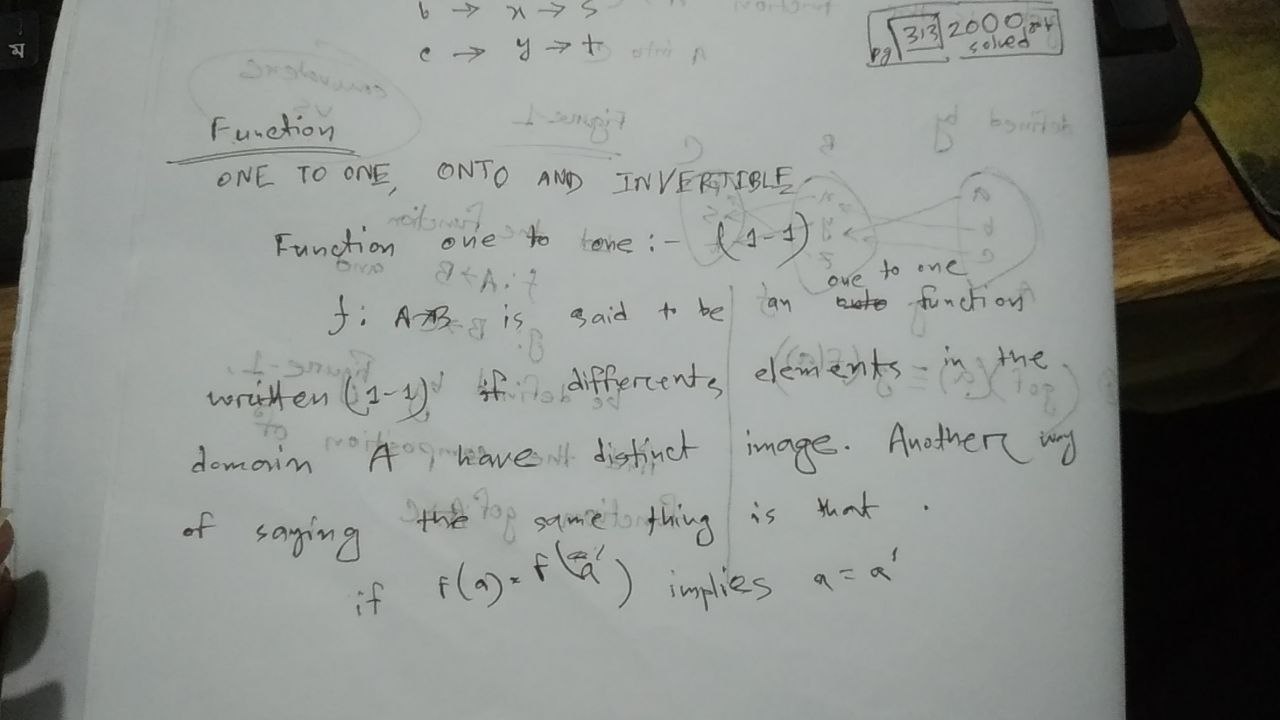 b → x → s
c → y → t
pg 313 2000 solved
Function
ONE TO ONE, ONTO AND INVERTIBLE
Function one to one :- (1-1)
one to one
f: A→B is said to be an onto function
written (1-1) if differents elements in the
domain A have distinct image. Another way
of saying the same thing is that .
if f(a) = f(a') implies a = a'